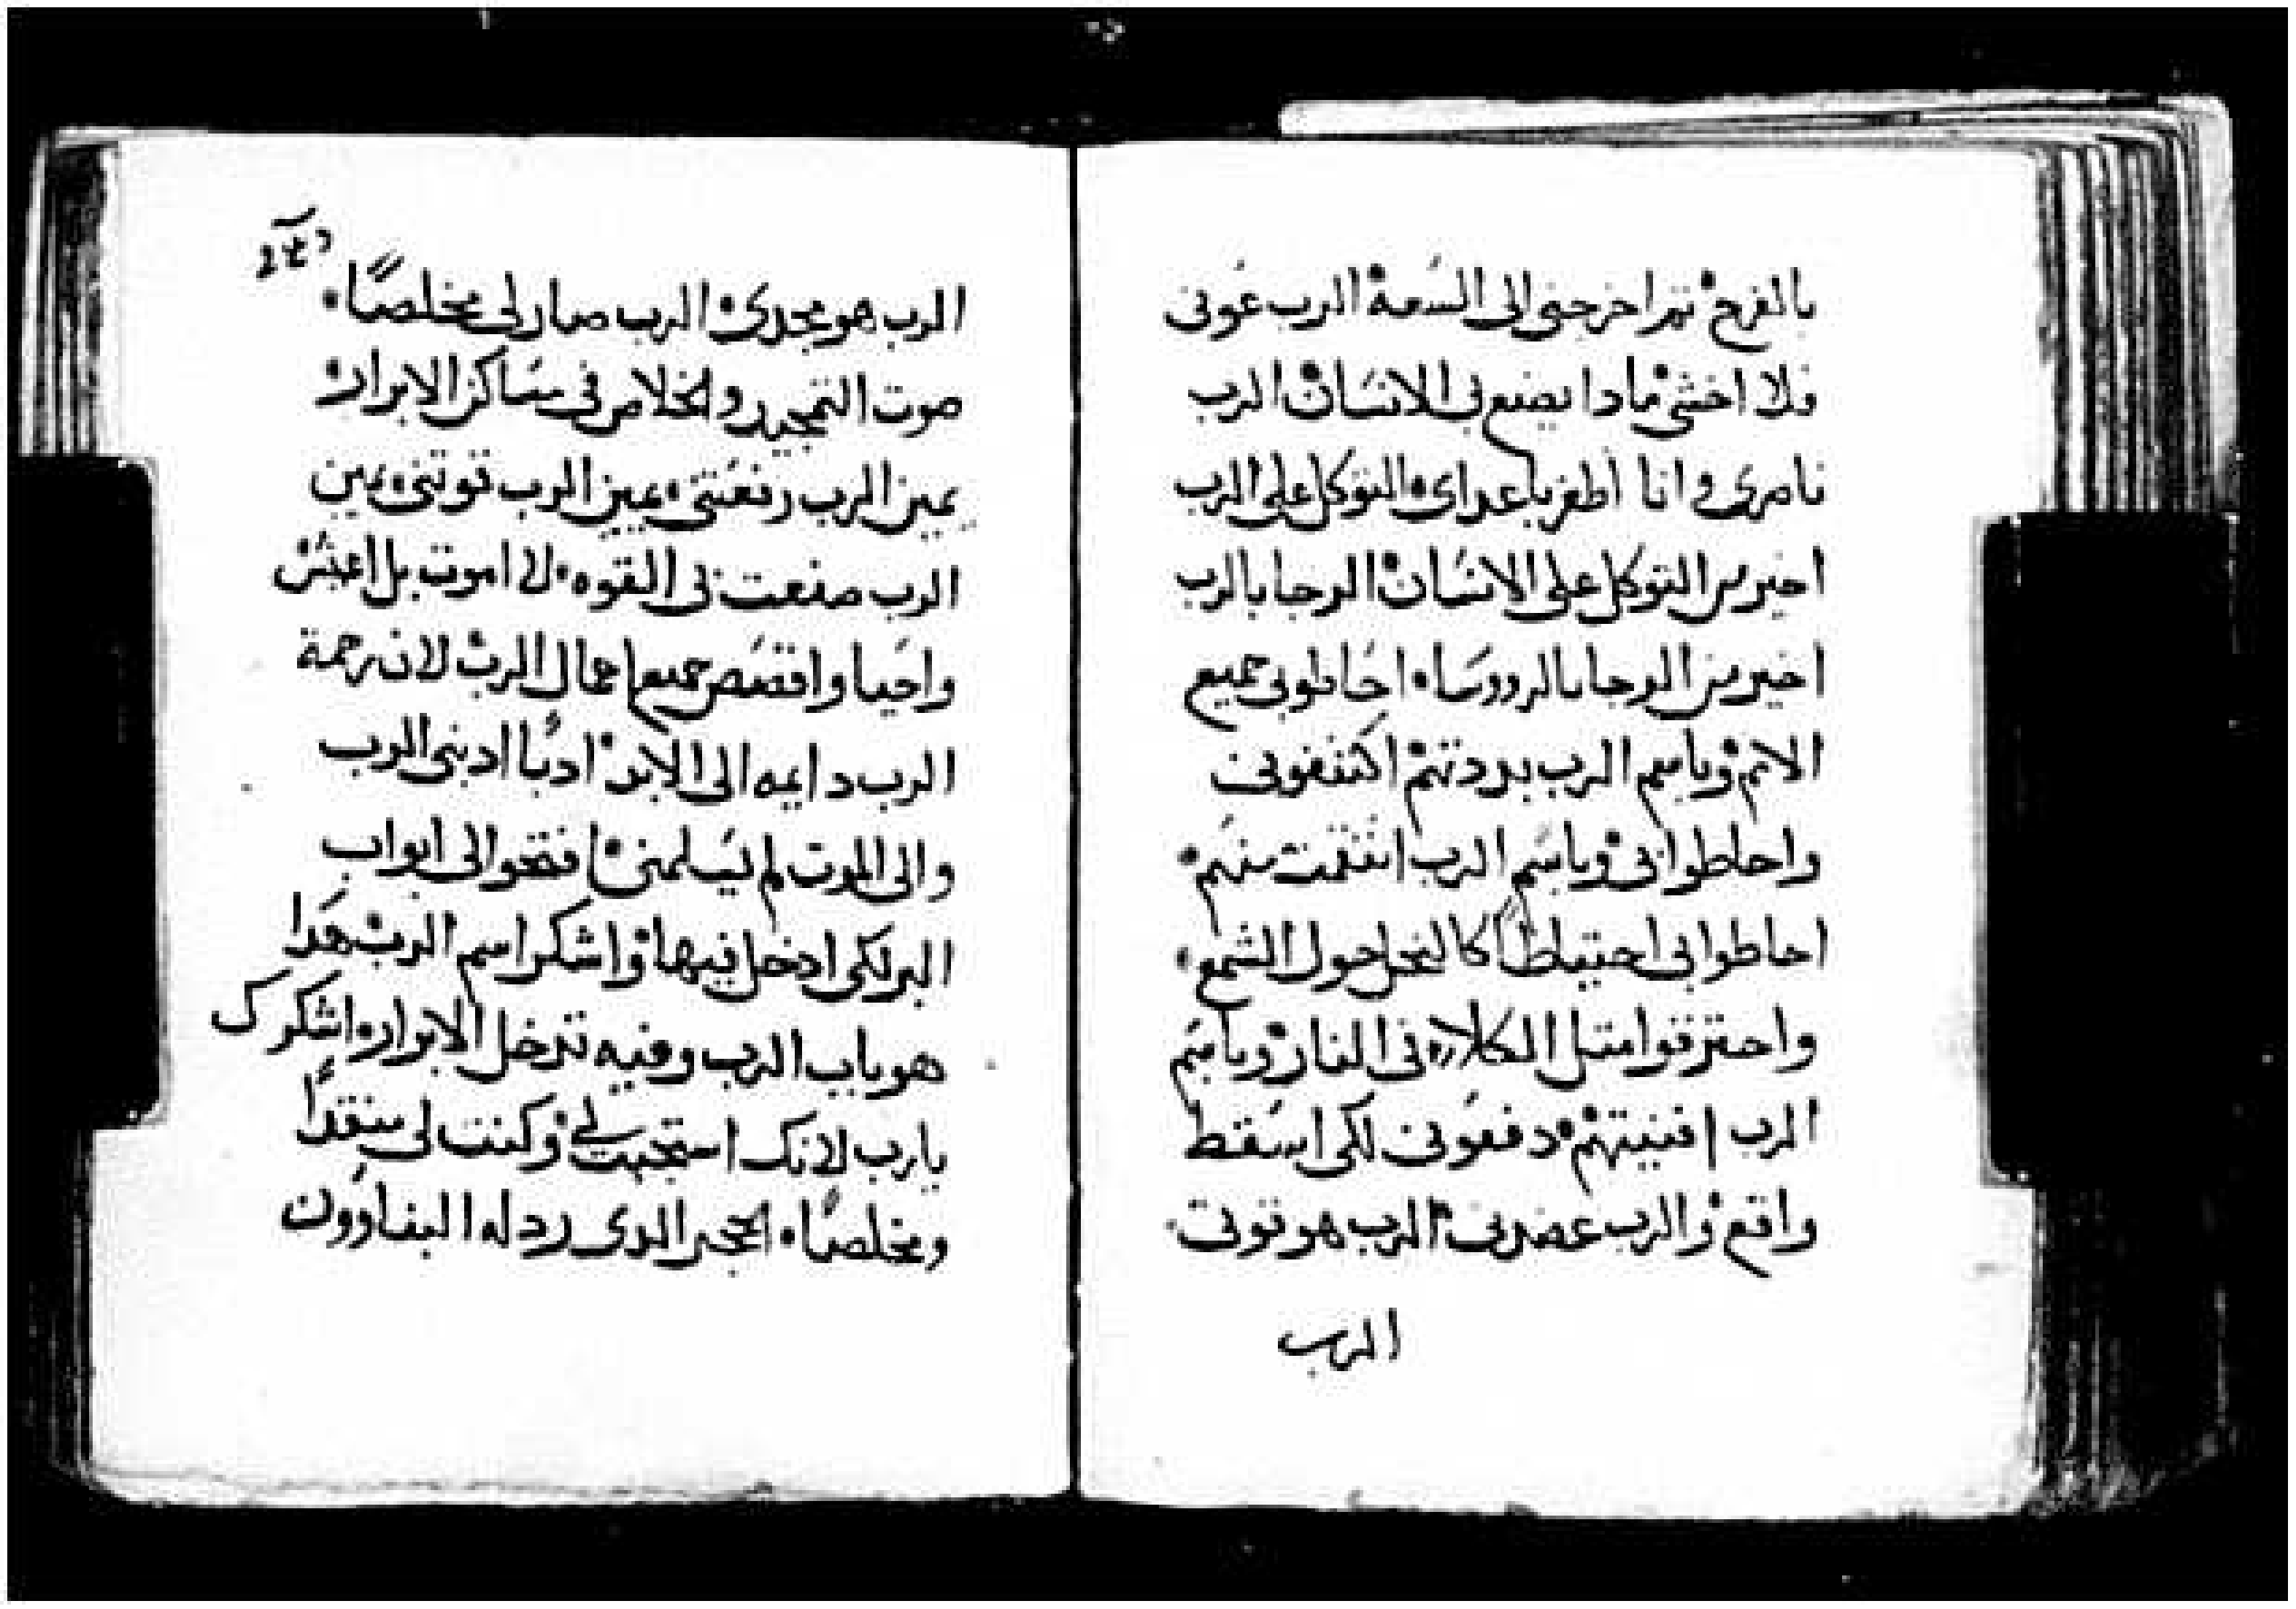 بالفرح ثم اخرجنى الى السعة الرب عونى
فلا اخشى مادا يصنع بى الانسان الرب
ناصرى وانا اظفر باعداى التوكل على الرب
اخير من التوكل على الانسان الرجا بالرب
اخير من الرجا بالرووسا احاطوبى جميع
الامم وباسم الرب بددتهم اكتنفونى
واحاطوا بى وباسم الرب انتقمت منهم
احاطوا بى احتياطًا كالنحل حول الشمع
واحترقوا متل الكلا فى النار وباسم
الرب افنيتهم دفعونى لكى اسقط
واقع والرب عضدنى الرب هو قوتى
الرب
الرب هو مجدى الرب صار لى مخلصًا
صوت التمجيد والخلاص فى مساكن الابرار
يمين الرب رفعتنى يمين الرب قوتنى يمين
الرب صنعت فى القوه لا اموت بل اعيش
واحيا واقصص جميع اعمال الرب لان رحمة
الرب دايمه الى الابد ادبًا ادبنى الرب
والى الموت لم يسلمنى افتحوا لى ابواب
البر لكى ادخل فيها واشكر اسم الرب هدا
هو باب الرب وفيه تدخل الابرار اشكرك
يارب لانك استجبت لى وكنت لى منقدًا
ومخلصًا الحجر الدى رد له البناوون